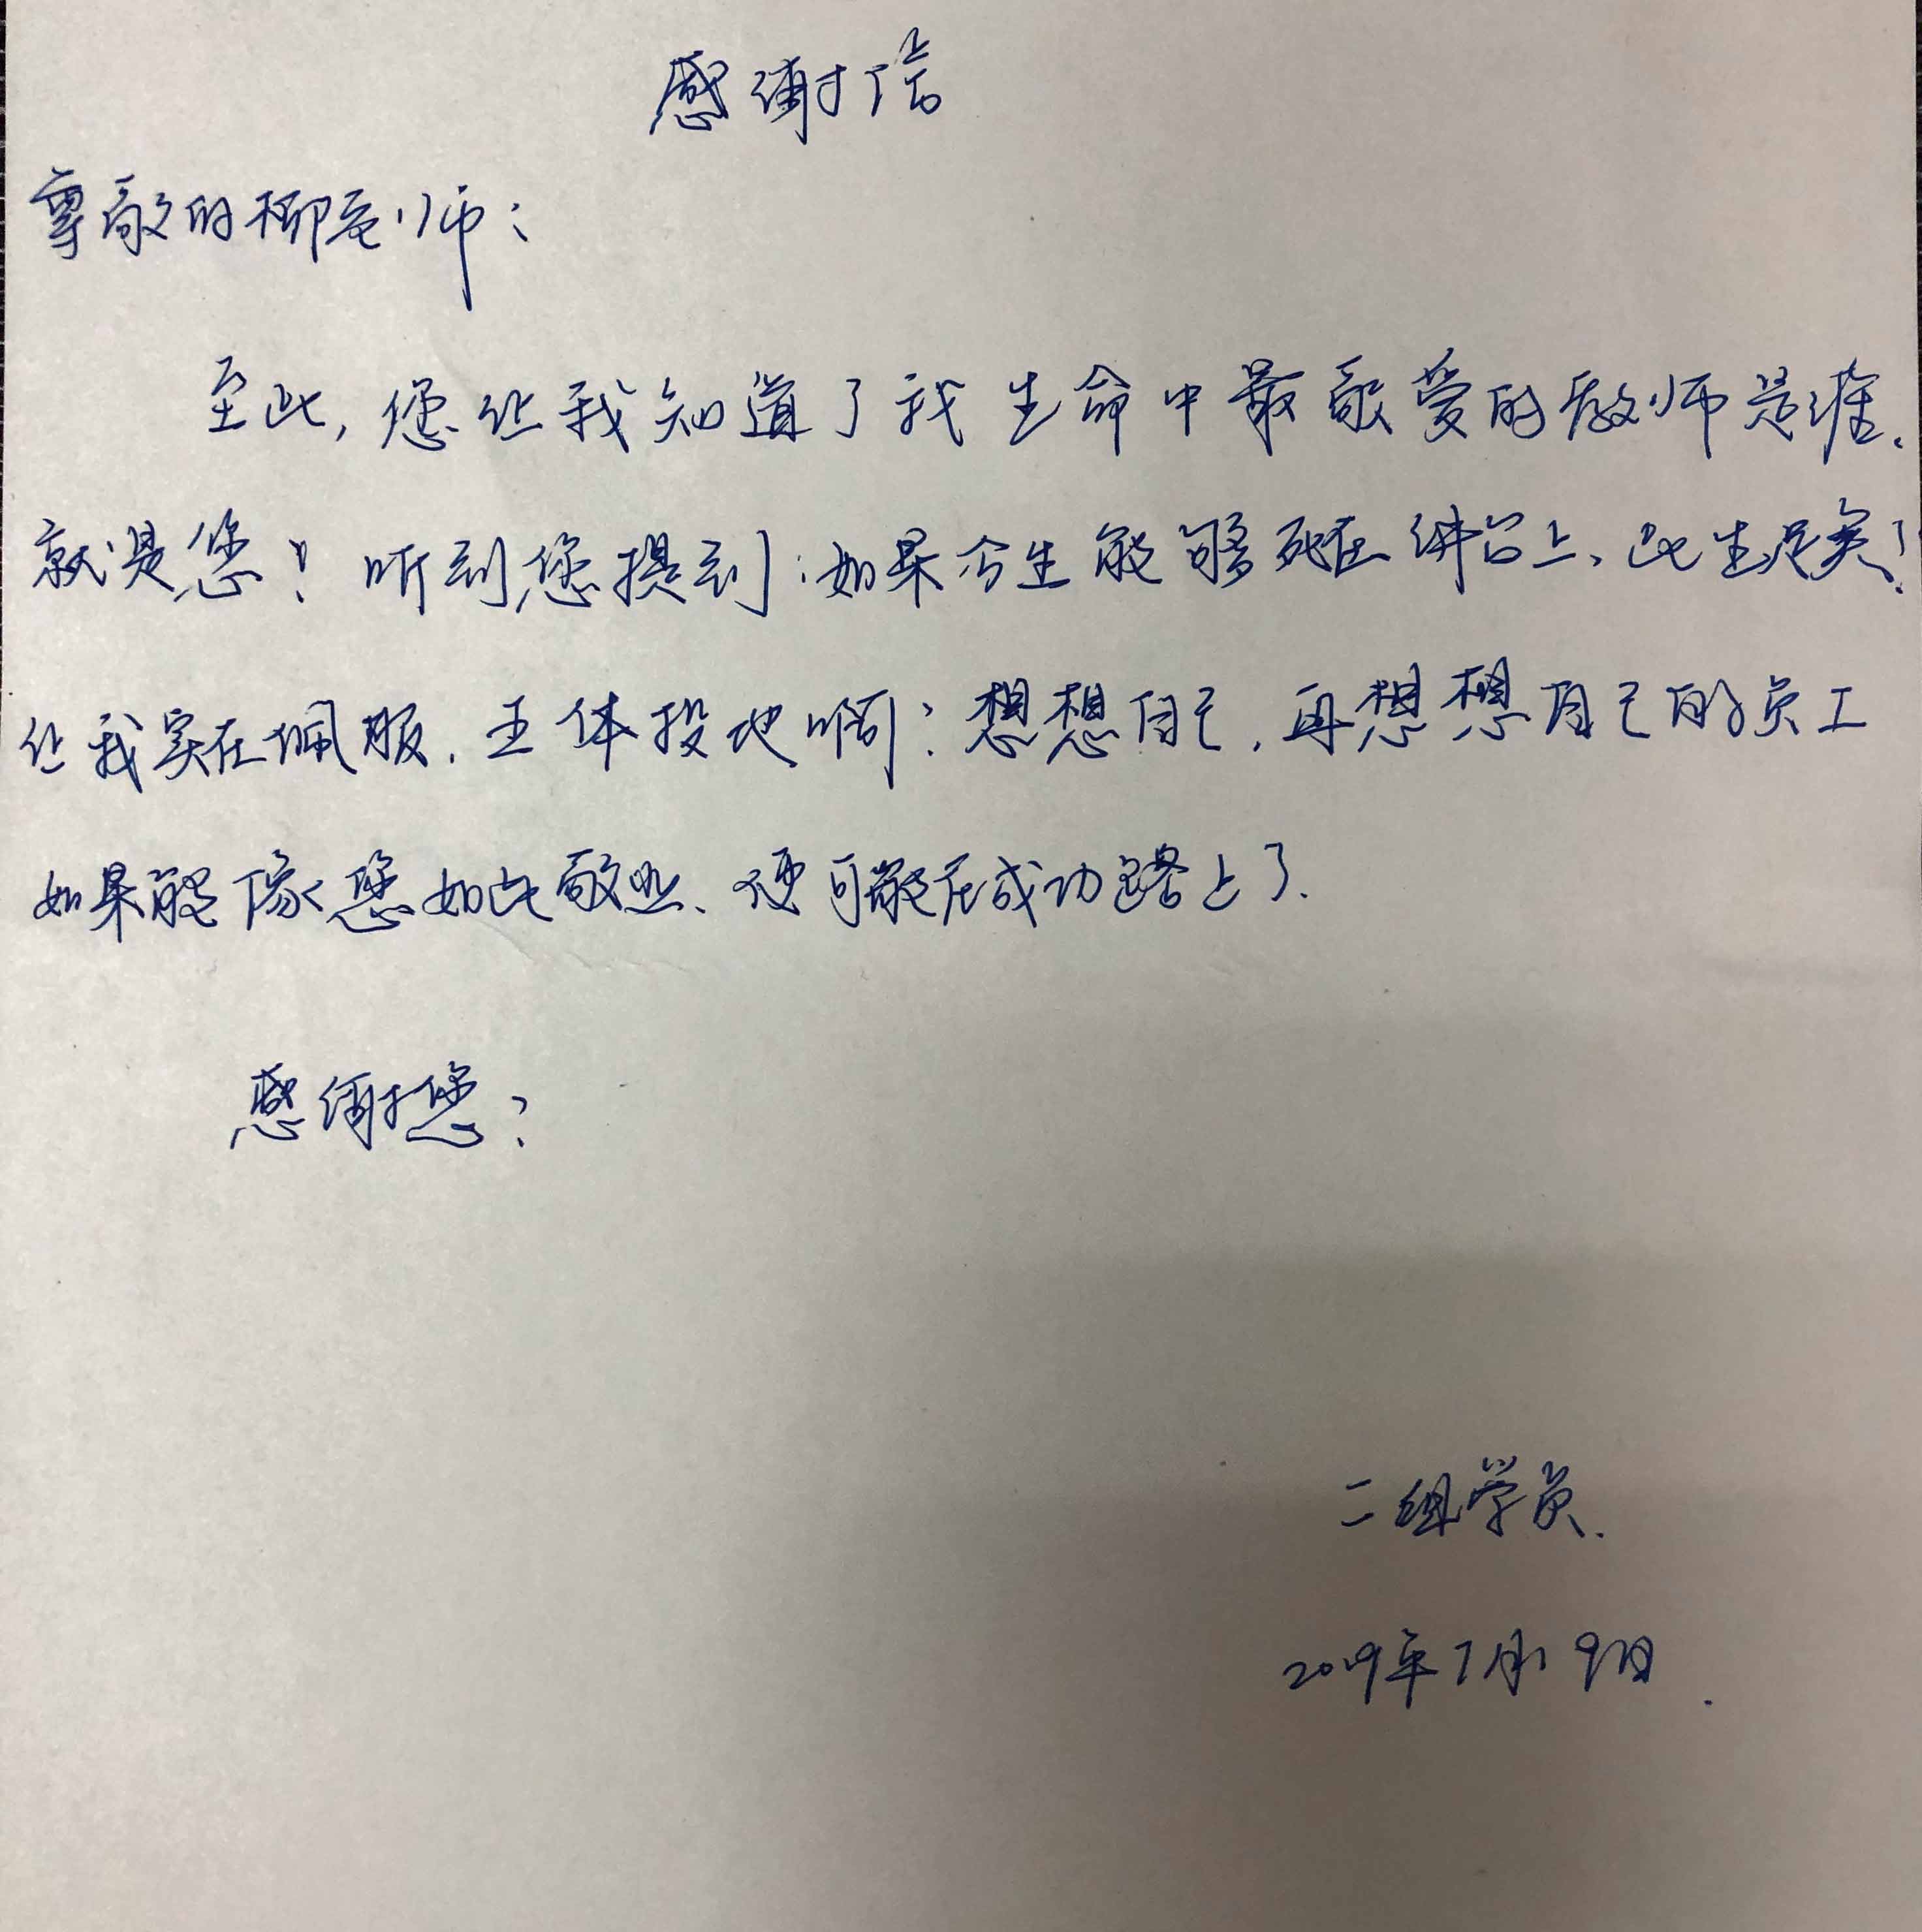 感谢信
尊敬的柳老师：
至此，您让我知道了我生命中最敬爱的教师是谁.
就是您！听到您提到：如果今生能够死在讲台上、此生足矣！
让我实在佩服.五体投地啊！想想自己，再想想自己的员工
如果能像您如此敬业、便可能在成功路上了.
感谢您！
二组学员.
2019年7月19日.